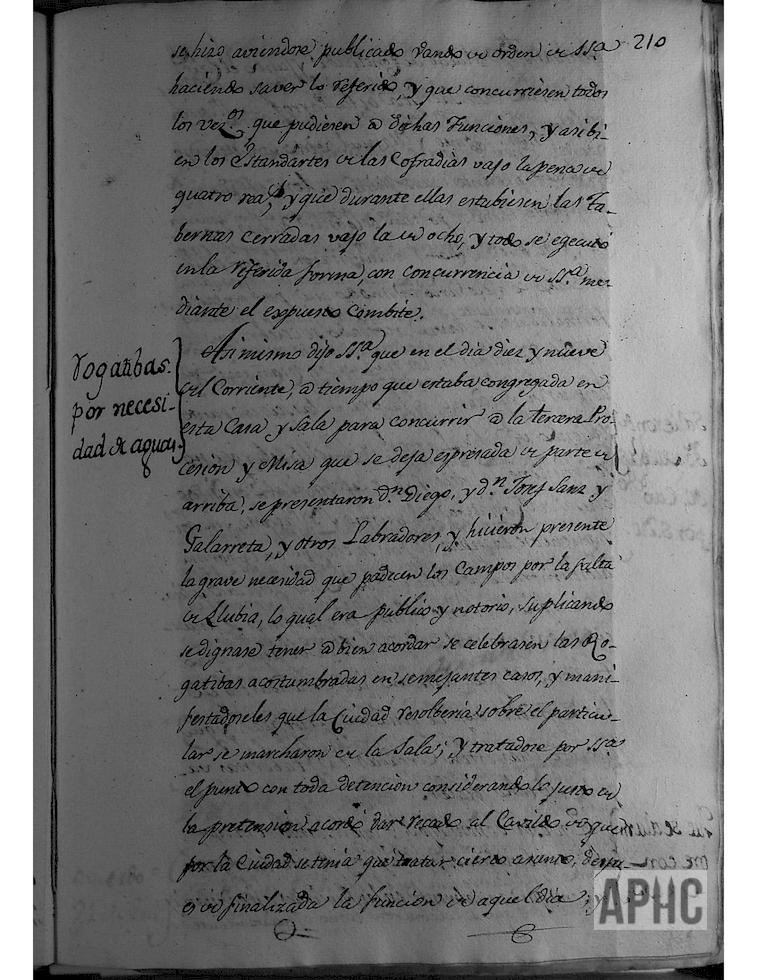 210
se hizo aviendose publicado vando de orden de SSª
haciendo saver lo referido, y que concurriesen todos
los vezos. que pudiesen a dichas Funciones, y asi bi-
en los Estandartes de las Cofradias vajo la pena de
quatro reas, y que durante ellas estubiesen las Ta-
bernas cerradas vajo la de ocho, y todo se egecutó
en la referida forma, con concurrencia de SSª me-
diante el expuesto combite.
Rogatibas
por necesi-
dad de aguas
Asimismo dijo SSª que en el dia diez y nueve
del Corriente, a tiempo que estaba congregada en
esta Casa y Sala para concurrir a la tercera Pro-
cesion y Misa que se deja espresada de parte de
arriba, se presentaron Dn. Diego, y Dn. Josef Sanz y
Galarreta, y otros Labradores, y hicieron presente
la grave necesidad que padecen los Campos por la falta
de Llubia, lo qual era publico y notorio, suplicando
se dignase tener a bien acordar se celebrasen las Ro-
gatibas acostumbradas en semejantes casos, y mani-
festadoseles que la Ciudad resolberia sobre el particu-
lar se marcharon de la Sala; y tratadose por SSª
el punto con toda detencion considerando lo justo de
la pretension acordó dar recado al Cavildo de que
por la Ciudad se tenia que tratar cierto asunto, despu-
es de finalizada la funcion de aquel dia; y
APHC